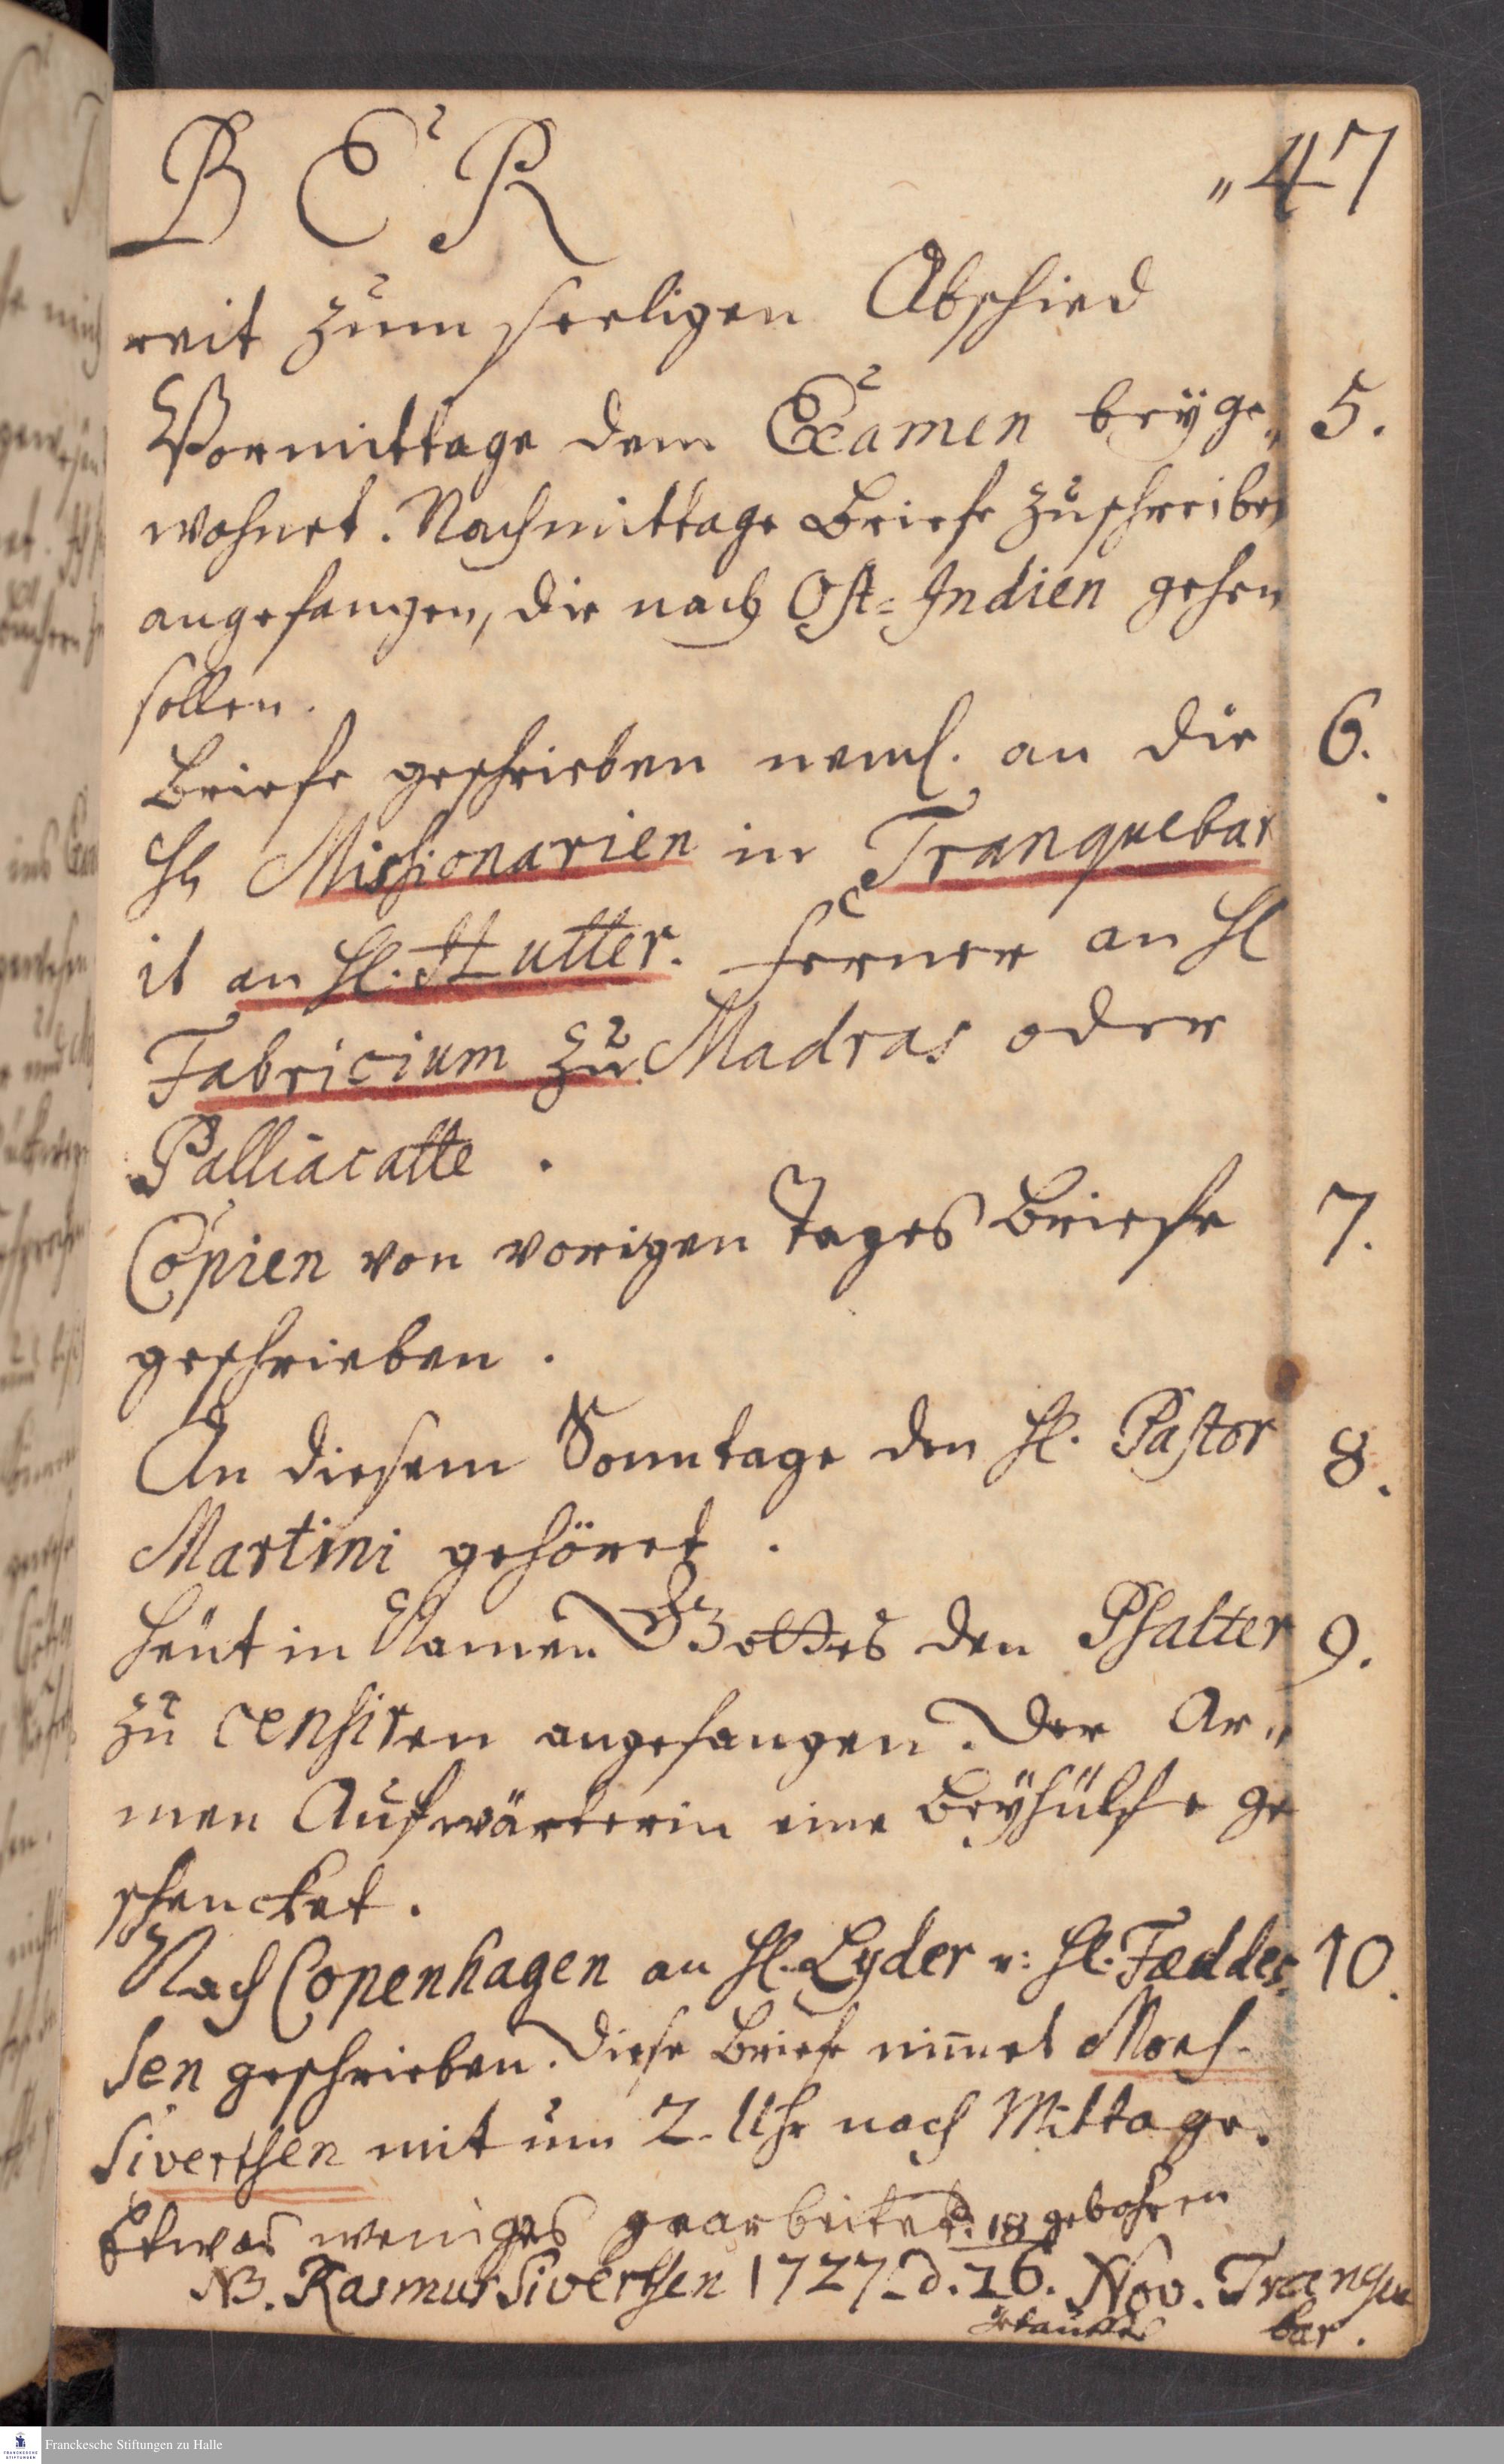 B E R „47
reit zum seeligen Abschied
Vormittage dem Examen beyge„ 5.
wohnet. Nachmittage Briefe zuschreiben
angefangen, die nach Ost=Indien gehen
sollen.
Briefe geschrieben neml. an die 6.
HH Missionarien in Tranquebar
it an H. Hutter. ferner an H
Fabricium zu Madras oder
Palliacatte .
Copien von vorigen Tages Briefe 7.
geschrieben .
An diesem Sonntage den H. Pastor 8.
Martini gehöret .
Heut in Namen Gottes den Psalter 9.
zu censiren angefangen. Der Ar„
men Aufwärterin eine Beyhülfe ge
schencket.
Nach Copenhagen an H. Lyder u: H. Fædder, 10.
sen geschrieben. Diese Briefe nim̄et Mons.
Sivertsen mit um 2. Uhr nach Mittage.
Etwas weniges gearbeitet d. 18 gebohren
NB. Rasmus Sivertsen 1727 d. 26. Nov. Tranque
getaufft bar.
Franckesche Stiftungen zu Halle